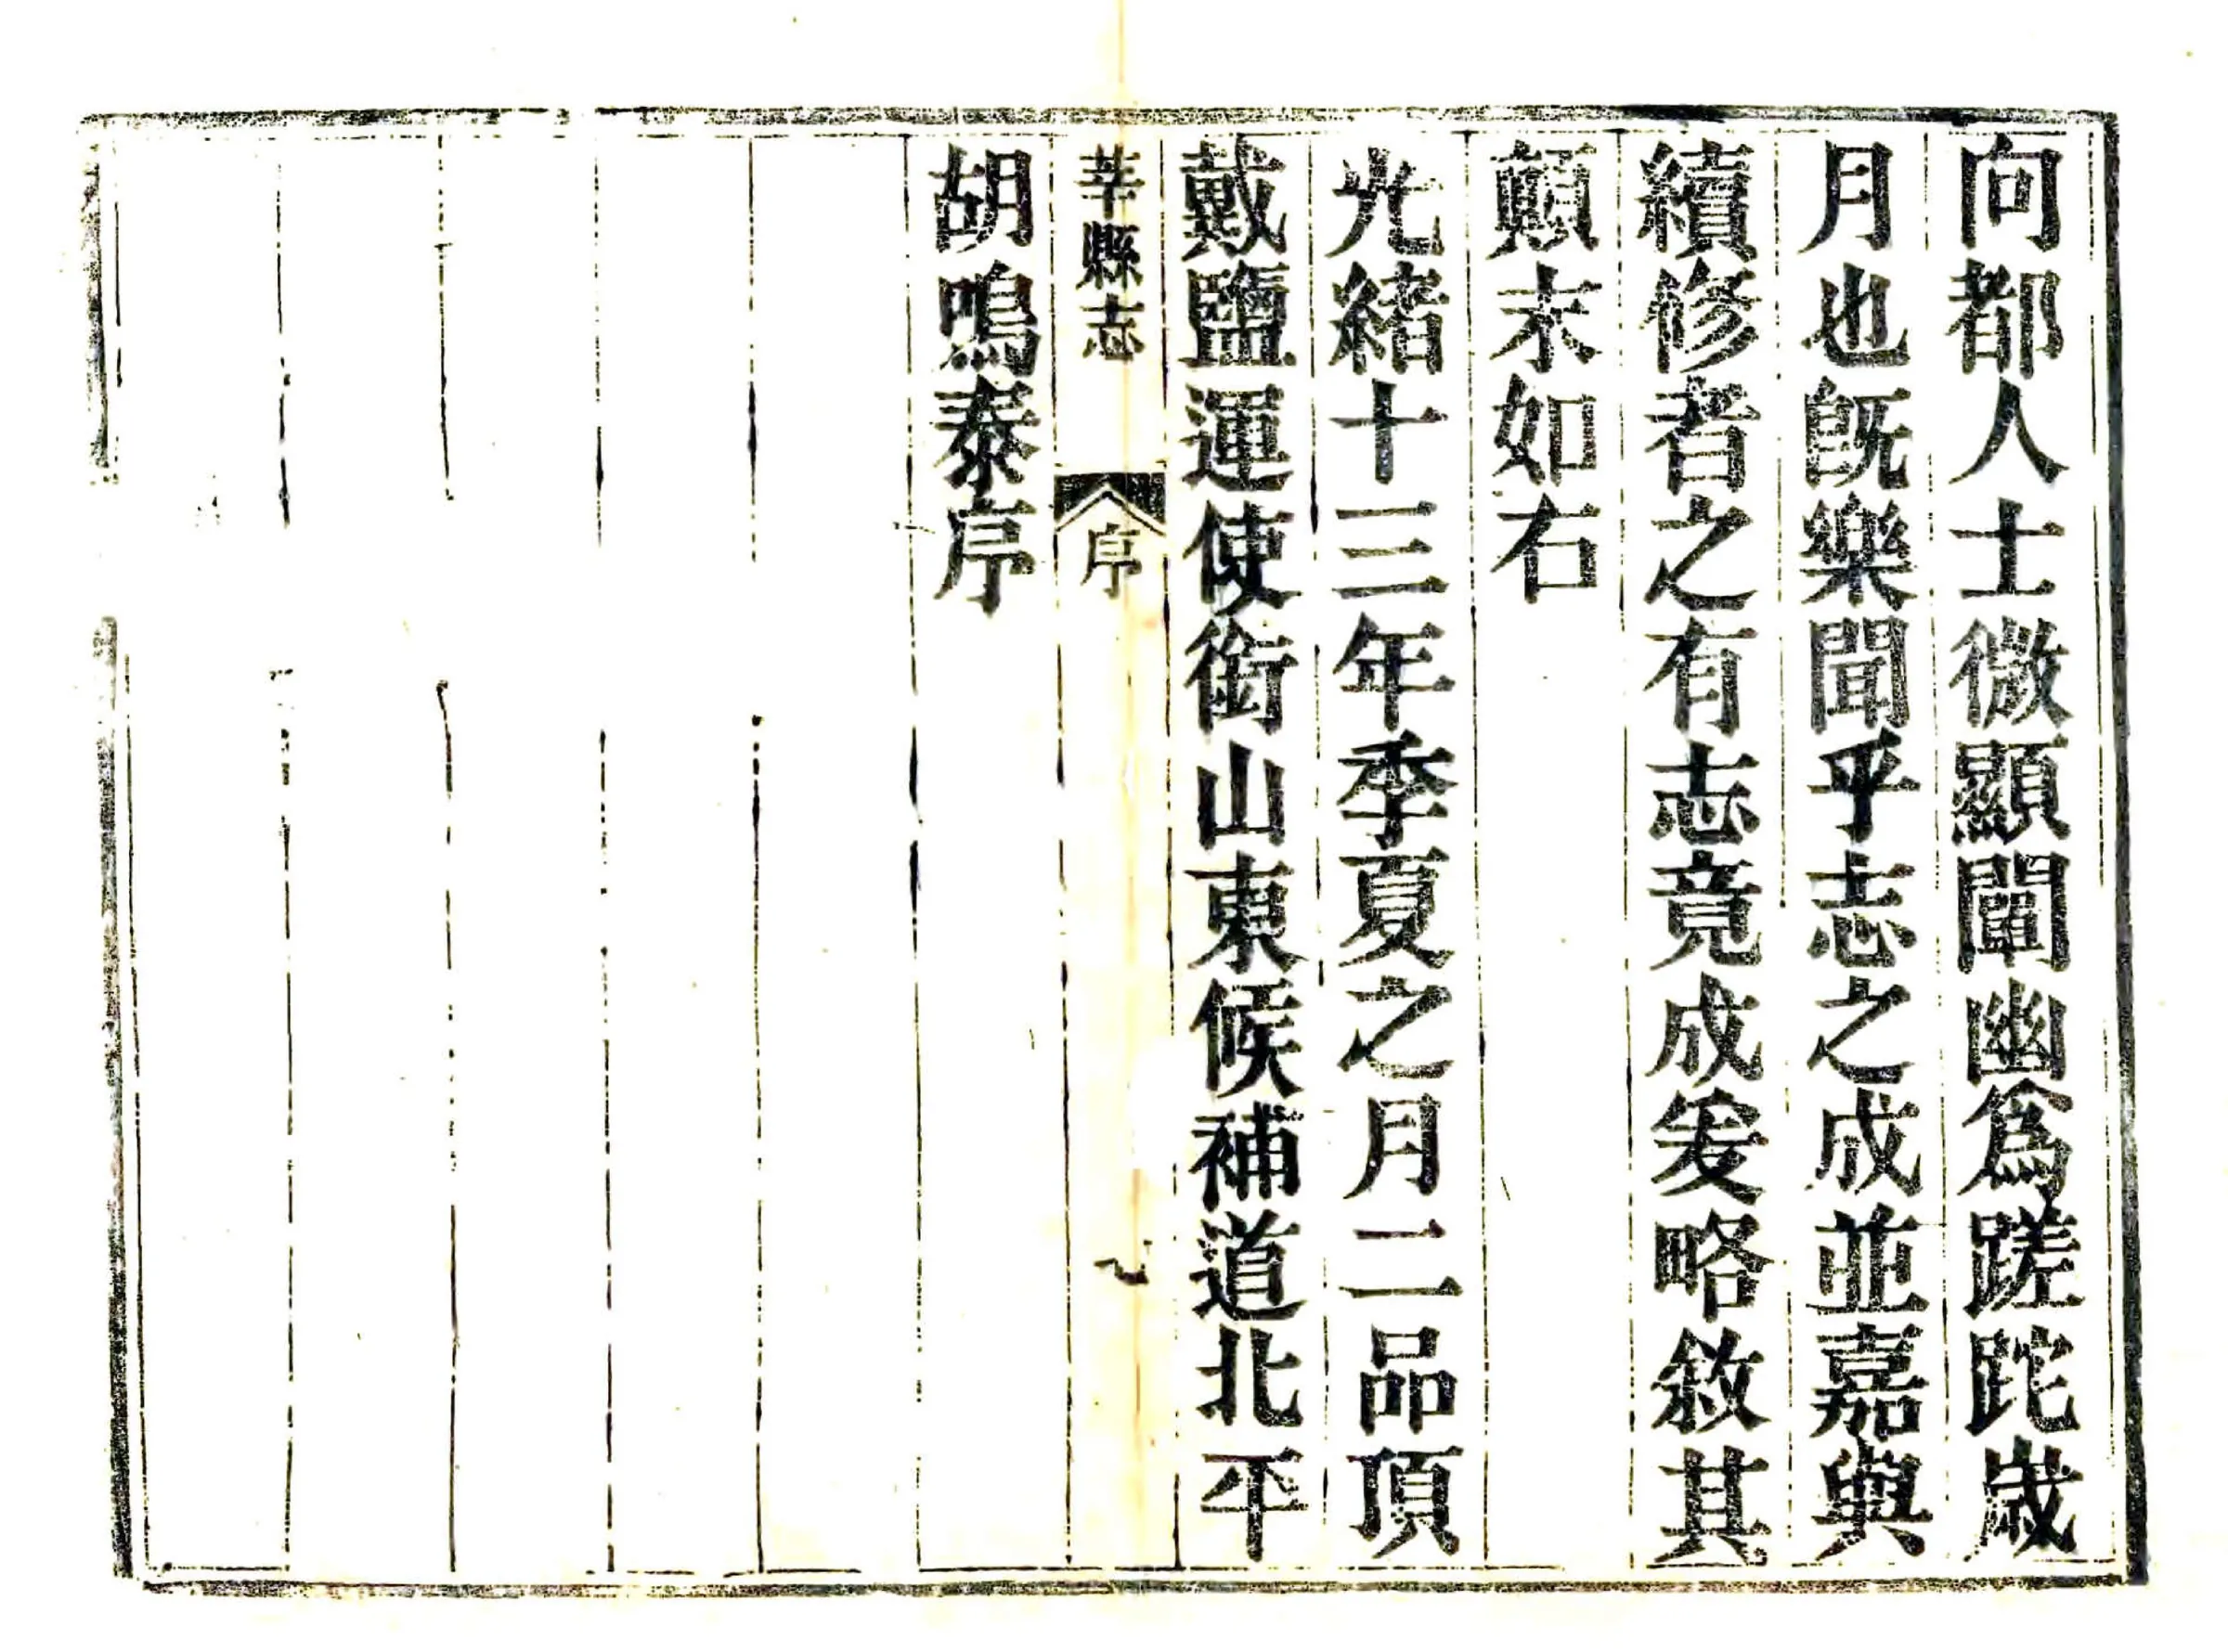 向都人士微顯闡幽爲蹉跎歲
月也旣樂聞乎志之成並嘉與
續修者之有志竟成爰略敘其
顛末如右
光緒十三年季夏之月二品頂
戴鹽運使銜山東候補道北平
莘縣志 序
胡鳴泰序